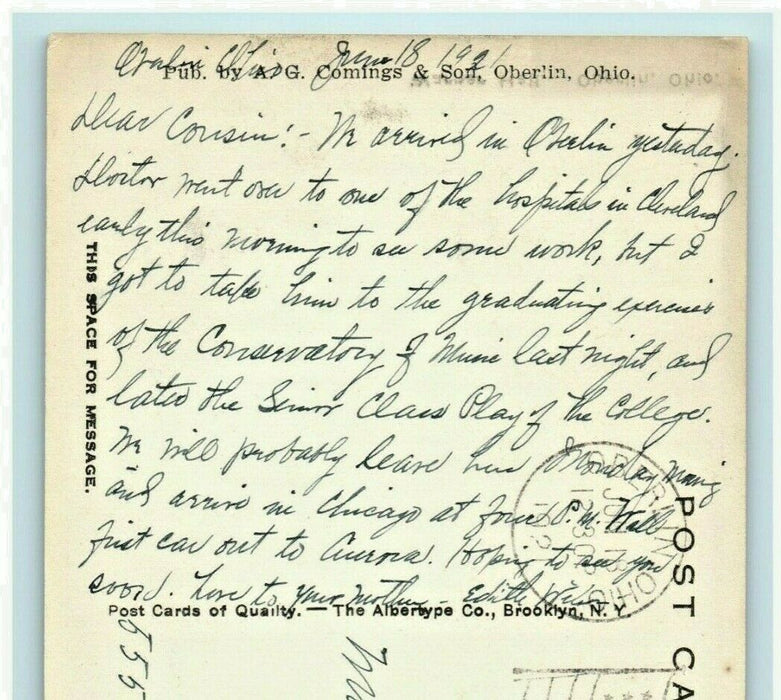 Oberlin Ohio June 18 1921
Pub. by A. G. Comings & Son, Oberlin, Ohio.
Dear Cousin:- We arrived in Oberlin yesterday.
Doctor went over to one of the hospitals in Cleveland
early this morning to see some work, but I
got to take him to the graduating exercises
of the Conservatory of Music last night, and
later the Senior Class Play of the College.
We will probably leave here Monday morning
and arrive in Chicago at four P.M. Will
first car out to Aurora. Hoping to see you
soon. Love to your Mother - Edith
Post Cards of Quality. — The Albertype Co., Brooklyn, N. Y.
THIS SPACE FOR MESSAGE.
POST CA
OBERLIN OHIO
555